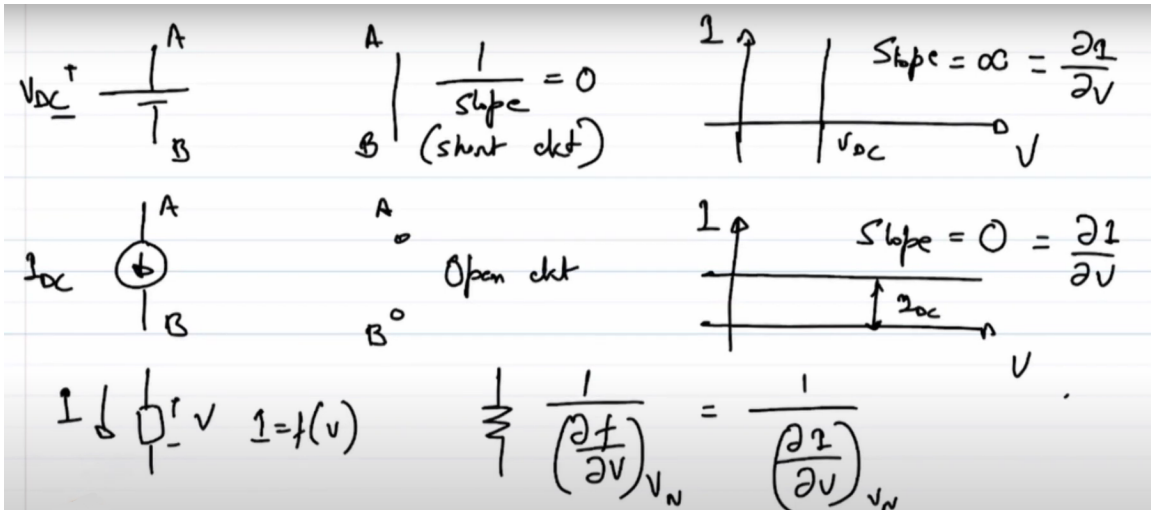 V_DC + − A B A B 1/slope = 0 (short ckt) I V_DC V Slope = ∞ = ∂I/∂V
I_DC A B A B Open ckt I I_DC V Slope = 0 = ∂I/∂V
I + − V I=f(V) 1/(∂f/∂V)_V_N = 1/(∂I/∂V)_V_N